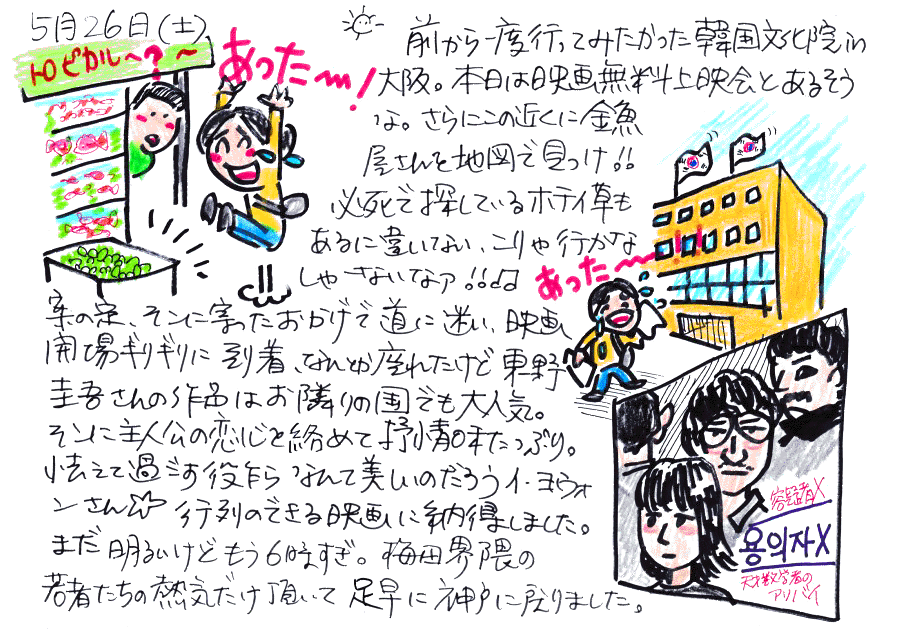 5月26日(土)
トロピカル〜?〜
あった〜!
前から一度行ってみたかった韓国文化院in
大阪。本日は映画無料上映会とあるそう
な。さらにこの近くに金魚
屋さんを地図で見っけ!!
必死で探しているホテイ草も
あるに違いない、こりゃ行かな
しゃあないなァ!!♫
あった〜!!
案の定、そこに寄ったおかげで道に迷い、映画
開場ギリギリに到着、なんとか座れたけど東野
圭吾さんの作品はお隣りの国でも大人気。
そこに主人公の恋心を絡めて抒情味たっぷり。
怯えて過ごす役乍らなんて美しいのだろうイ・ヨウォ
ンさん☆ 行列のできる映画に納得しました。
まだ明るいけどもう6時すぎ。梅田界隈の
若者たちの熱気だけ頂いて足早に神戸に戻りました。
容疑者X
용의자X
天才数学者の
アリバイ